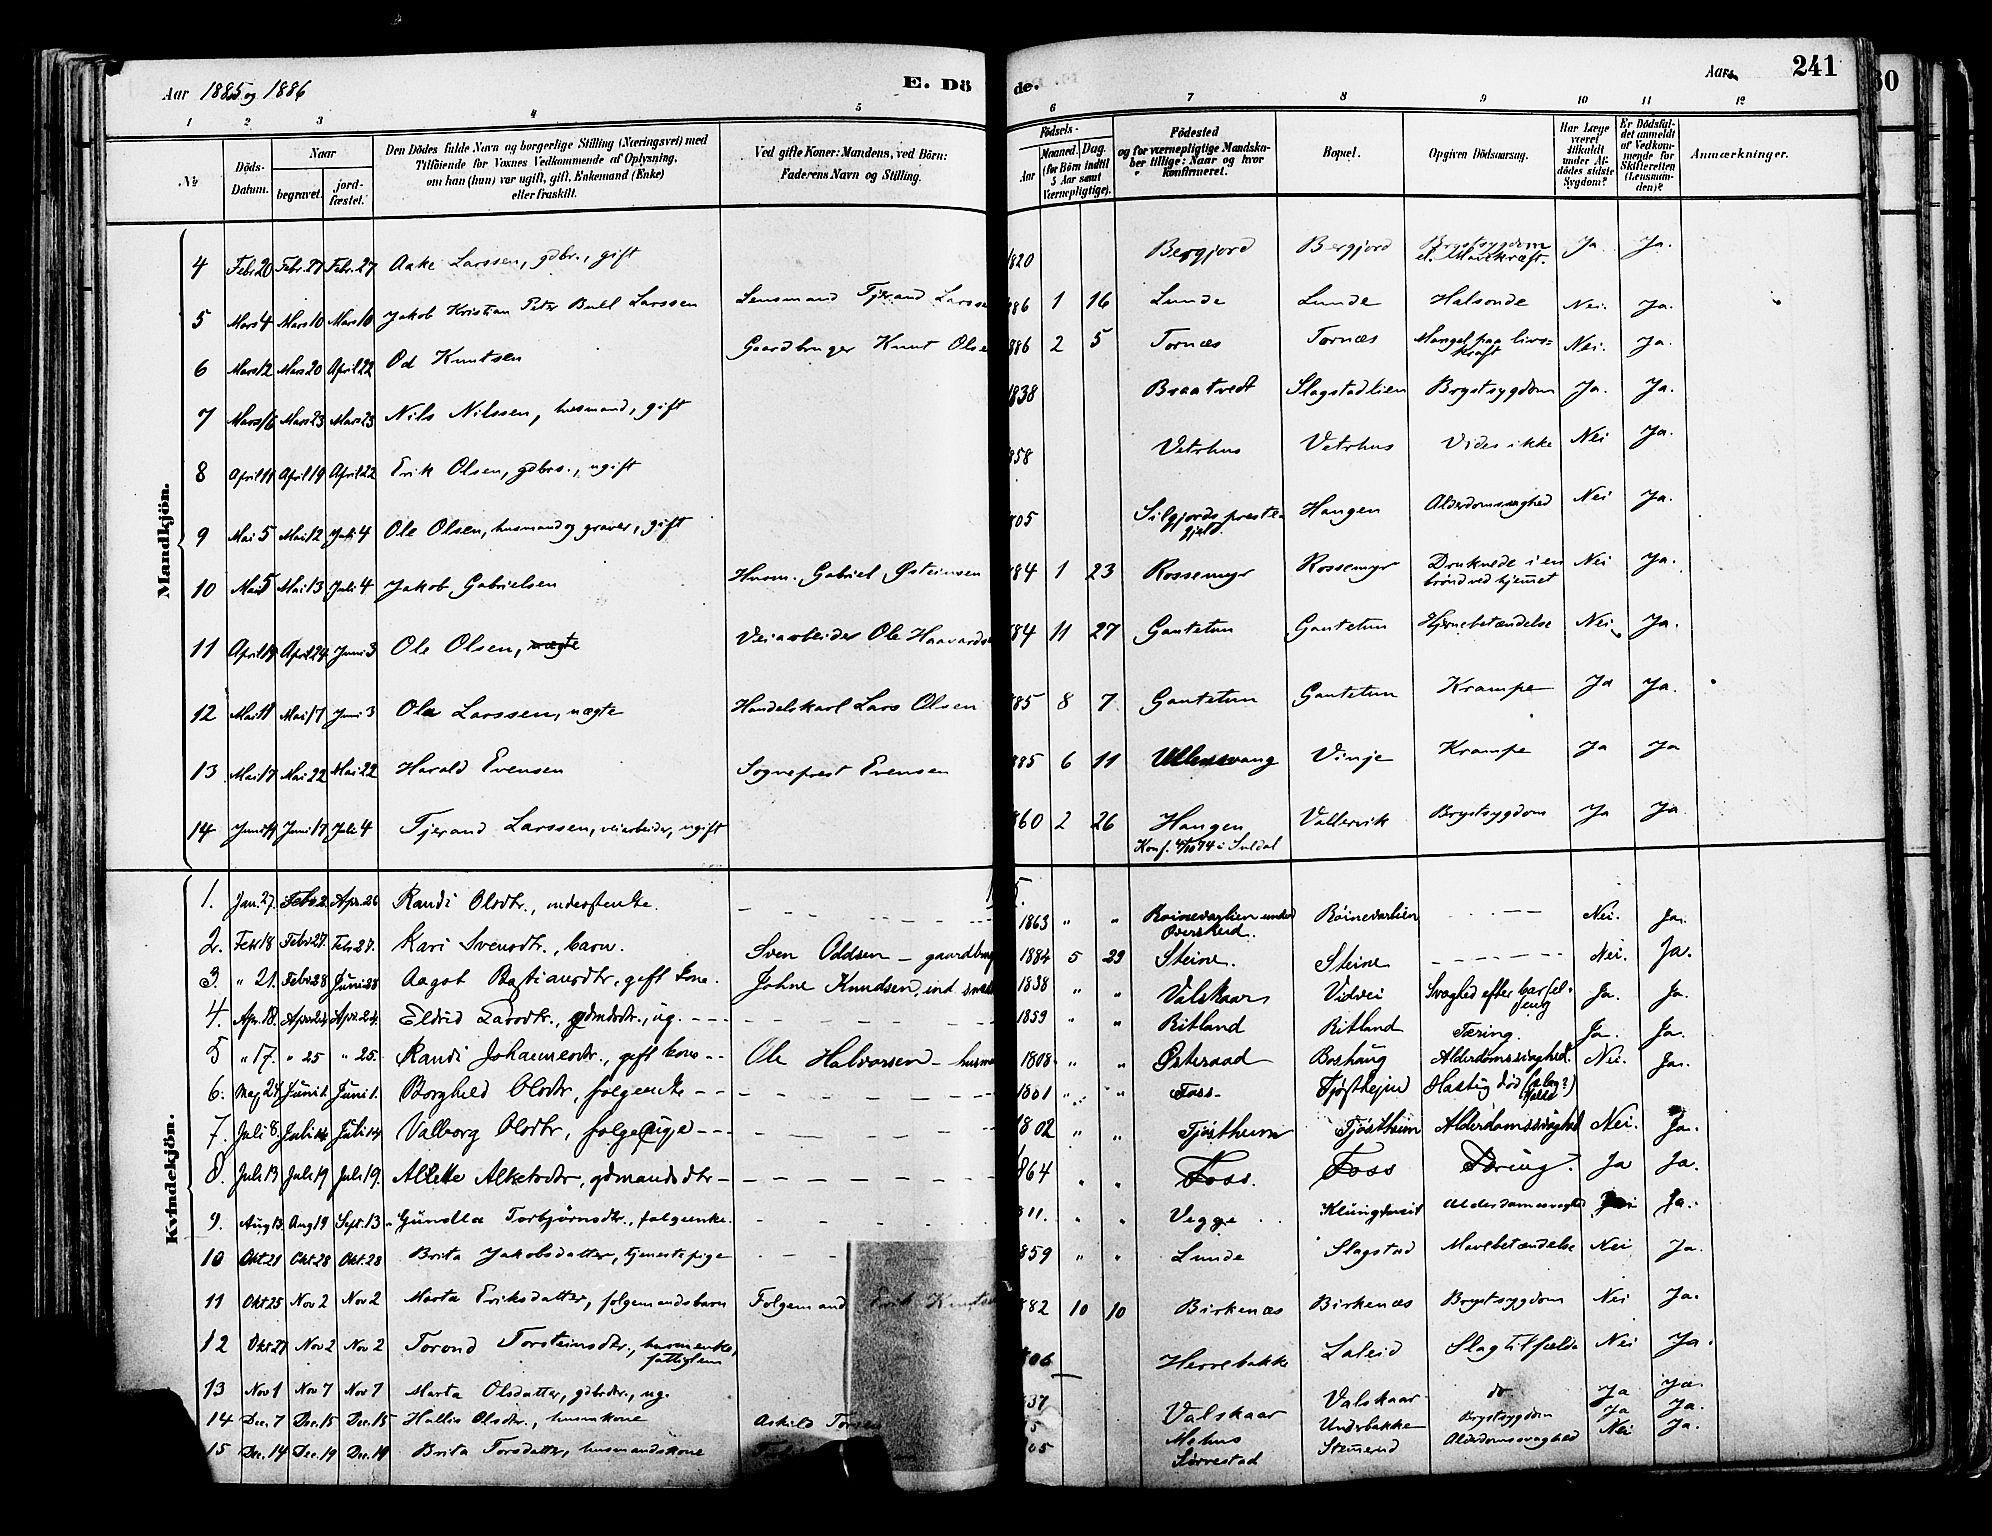 Aar 1885 og 1886
E. Dö
de.
Aar
241
1 2 3 4 5 6 7 8 9 10 11 12
№
Döds-Datum.
Naar
begravet.
jord-fæstet.
Den Dödes fulde Navn og borgerlige Stilling (Næringsvei) med
Tilföiende for Voxnes Vedkommende af Oplysning,
om han (hun) var ugift, gift, Enkemand (Enke)
eller fraskilt.
Ved gifte Koner: Mandens, ved Börn:
Faderens Navn og Stilling.
Födsels-
Aar
Maaned. Dag.
(for Börn indtil
5 Aar samt
Værnepligtige).
Födested
og for værnepligtige Mandska-
ber tillige: Naar og hvor
konfirmeret.
Bopæl.
Opgiven Dödsaarsag.
Har Læge
været
tilkaldt
under Af-
dödes sidste
Sygdom?
Er Dödsfal-
det anmeldt
af Vedkom-
mende for
Skifteretten
(Lensman-
den)?
Anmærkninger.
Mandkjön.
4 Febr 20 Febr. 27 Febr. 27 Aake Larssen, gdbr., gift 1820 Bergjord Bergjord Brystsygdom el. Mavekræft. Ja Ja.
5 Mars 4 Mars 10 Mars 10 Jakob Kristian Peter Bull Larssen Lensmand Tjerand Larsse 886 1 16 Lunde Lunde Halsonde Nei. Ja.
6 Mars 12 Mars 20 April 22 Od Knutsen Gaardbruger Knut Olse 886 2 5 Tornæs Tornæs Mangel paa livs-kraft Nei. Ja.
7 Mars 16 Mars 23 Mars 23 Nils Nilssen, husmand, gift 1838 Braatvedt Slagstadlien Brystsygdom Ja. Ja.
8 April 11 April 19 April 22 Erik Olsen, gdbrs., ugift 858 Vetrhus Vetrhus Vides ikke Nei Ja.
9 Mai 5 Mai 12 Juli 4 Ole Olsen, husmand og graver, gift 805 Silgjords preste-gjeld. Haugen Alderdomsvaghed Nei Ja.
10 Mai 5 Mai 13 Juli 4 Jakob Gabrielsen Husm. Gabriel Østeinsen 84 1 23 Rossemyr Rossemyr Druknede i en brönd ved hjemmet Nei Ja.
11 April 19 April 24 Juni 3 Ole Olsen, ægte Veiarbeider Ole Haavards 84 11 27 Gautetun Gautetun Hjernebetændelse Nei Ja.
12 Mai 11 Mai 17 Juni 3 Ola Larssen, uægte Handelskarl Lars Olsen 885 8 7 Gautetun Gautetun Krampe Ja Ja.
13 Mai 17 Mai 22 Mai 22 Harald Evensen Sogneprest Evensen 885 6 11 Ullensvang Vinje Krampe Ja Ja
14 Juni 11 Juni 17 Juli 4 Tjerand Larssen, veiarbeider, ugift 860 2 26 Haugen Konf. 4/10 74 i Suldal Vallervik Brystsygdom Ja Ja.
Kvindekjön.
1. Jan. 27. Febr 2. Apr. 26 Randi Olsdtr., inderstenke. 1863 " " Roinevarlien under Overskeid. Röinevarlien Nei. Ja.
2. Febr 18 Febr 27. Febr 27. Kari Svensdtr., barn. Sven Oddsen – gaardbrug 1884 5 29 Steine. Steine Nei. Ja.
3. " 21. Febr 28 Juni 28 Aagot Bastiansdtr, gift kone. Johne Knudsen, ind 1838 " " Valskaar Vidvei Svaghed efter barsel-seng Ja. Ja.
4. Apr. 18. Apr. 24. Apr. 24. Eldrid Larsdtr., gdmdsdtr., ug. 1859 " " Ritland Ritland Tæring. Ja. Ja.
5 " 17. " 25 " 25. Randi Johannesdtr., gift kone Ole Halvorsen – husm 1808 " " Østeraad Boshaug Alderdomssvaghed. Nei. Ja.
6. Maj 24 Juni 1 Juni 1. Borghild Olsdtr, folgeenke 1801 " " Foss. Tjöstheim Hastig död (slag?)
7. Juli 8. Juli 14. Juli 14 Valborg Olsdtr, folgepige 1802 " " Tjöstheim Tjöstheim Alderdomssvaghed Nei. Ja.
8. Juli 13 Juli 19 Juli 19. Allette Alketsdtr, gdmandsdtr 864 " " Foss. Foss Tæring. Ja Ja.
9. Aug 13 Aug 19 Sept. 13 Gunilla Torbjörnsdtr., folgeenke. 811. " " Vegge Klungtveit Alderdomssvaghed Ja.
10 Okt. 21 Okt. 28 Okt. 28 Brita Jakobsdatter, tjenestepige 859 " " Lunde Slagstad Mavebetændelse Nei Ja.
11 Okt 25 Nov 2 Nov 2 Marta Eriksdatter, folgemandsbarn Folgemand Erik Knuts 882 10 10 Birkenæs Birkenæs Brystsygdom Nei Ja.
12 Okt 27 Nov 2 Nov 2 Torond Torsteinsdtr., husmenke, fattiglem 806 Herrebakke Laleid Slagtilfælde Nei Ja.
13 Nov 1 Nov 7 Nov 7 Marta Olsdatter, gdbrdtr., ug. 37 Valskaar Valskaar do Ja Ja.
14 Dec. 7 Dec. 15 Dec. 15 Hallis Olsdtr., husmkone Askild Torse 5 Mohus Underbakke Brystsygdom Ja Ja.
15 Dec. 14 Dec. 19 Dec. 19 Brita Torsdatter, husmandskone 05 Störvestad Stemerud Alderdomssvaghed Nei Ja.